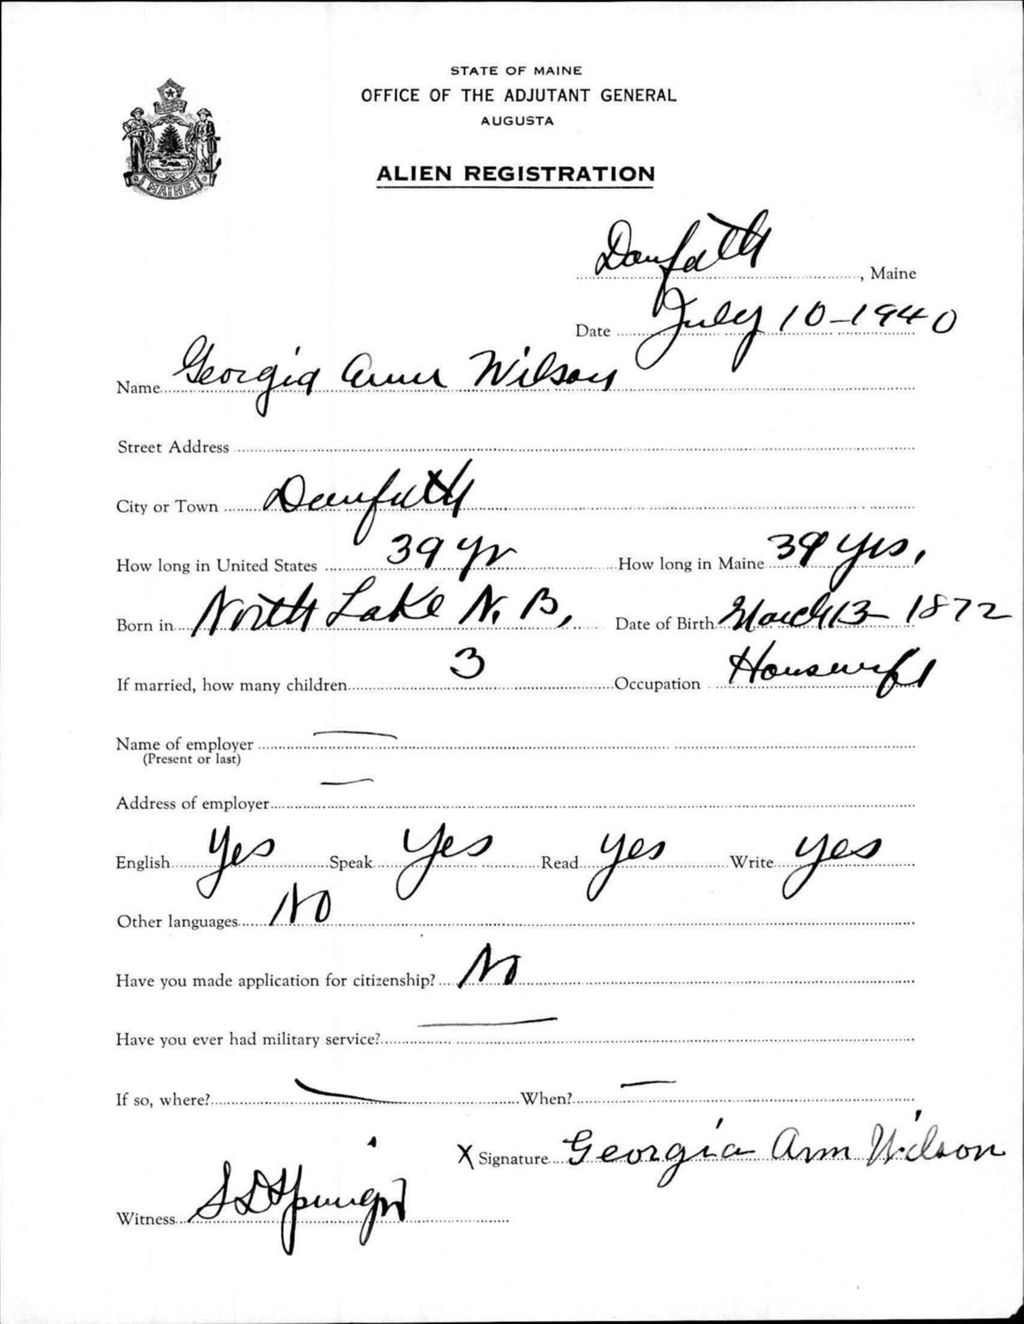 STATE OF MAINE
OFFICE OF THE ADJUTANT GENERAL
AUGUSTA
ALIEN REGISTRATION
MAINE
Danforth, Maine
Date July 10-1940
Name Georgia Ann Wilson
Street Address
City or Town Danforth
How long in United States 39 yr How long in Maine 39 yrs,
Born in North Lake N. B, Date of Birth March 13 - 1872
If married, how many children 3 Occupation Housewife
Name of employer —
(Present or last)
Address of employer —
English Yes Speak Yes Read yes Write yes
Other languages No
Have you made application for citizenship? No
Have you ever had military service? —
If so, where? — When? —
X Signature Georgia Ann Wilson
Witness S D Springer